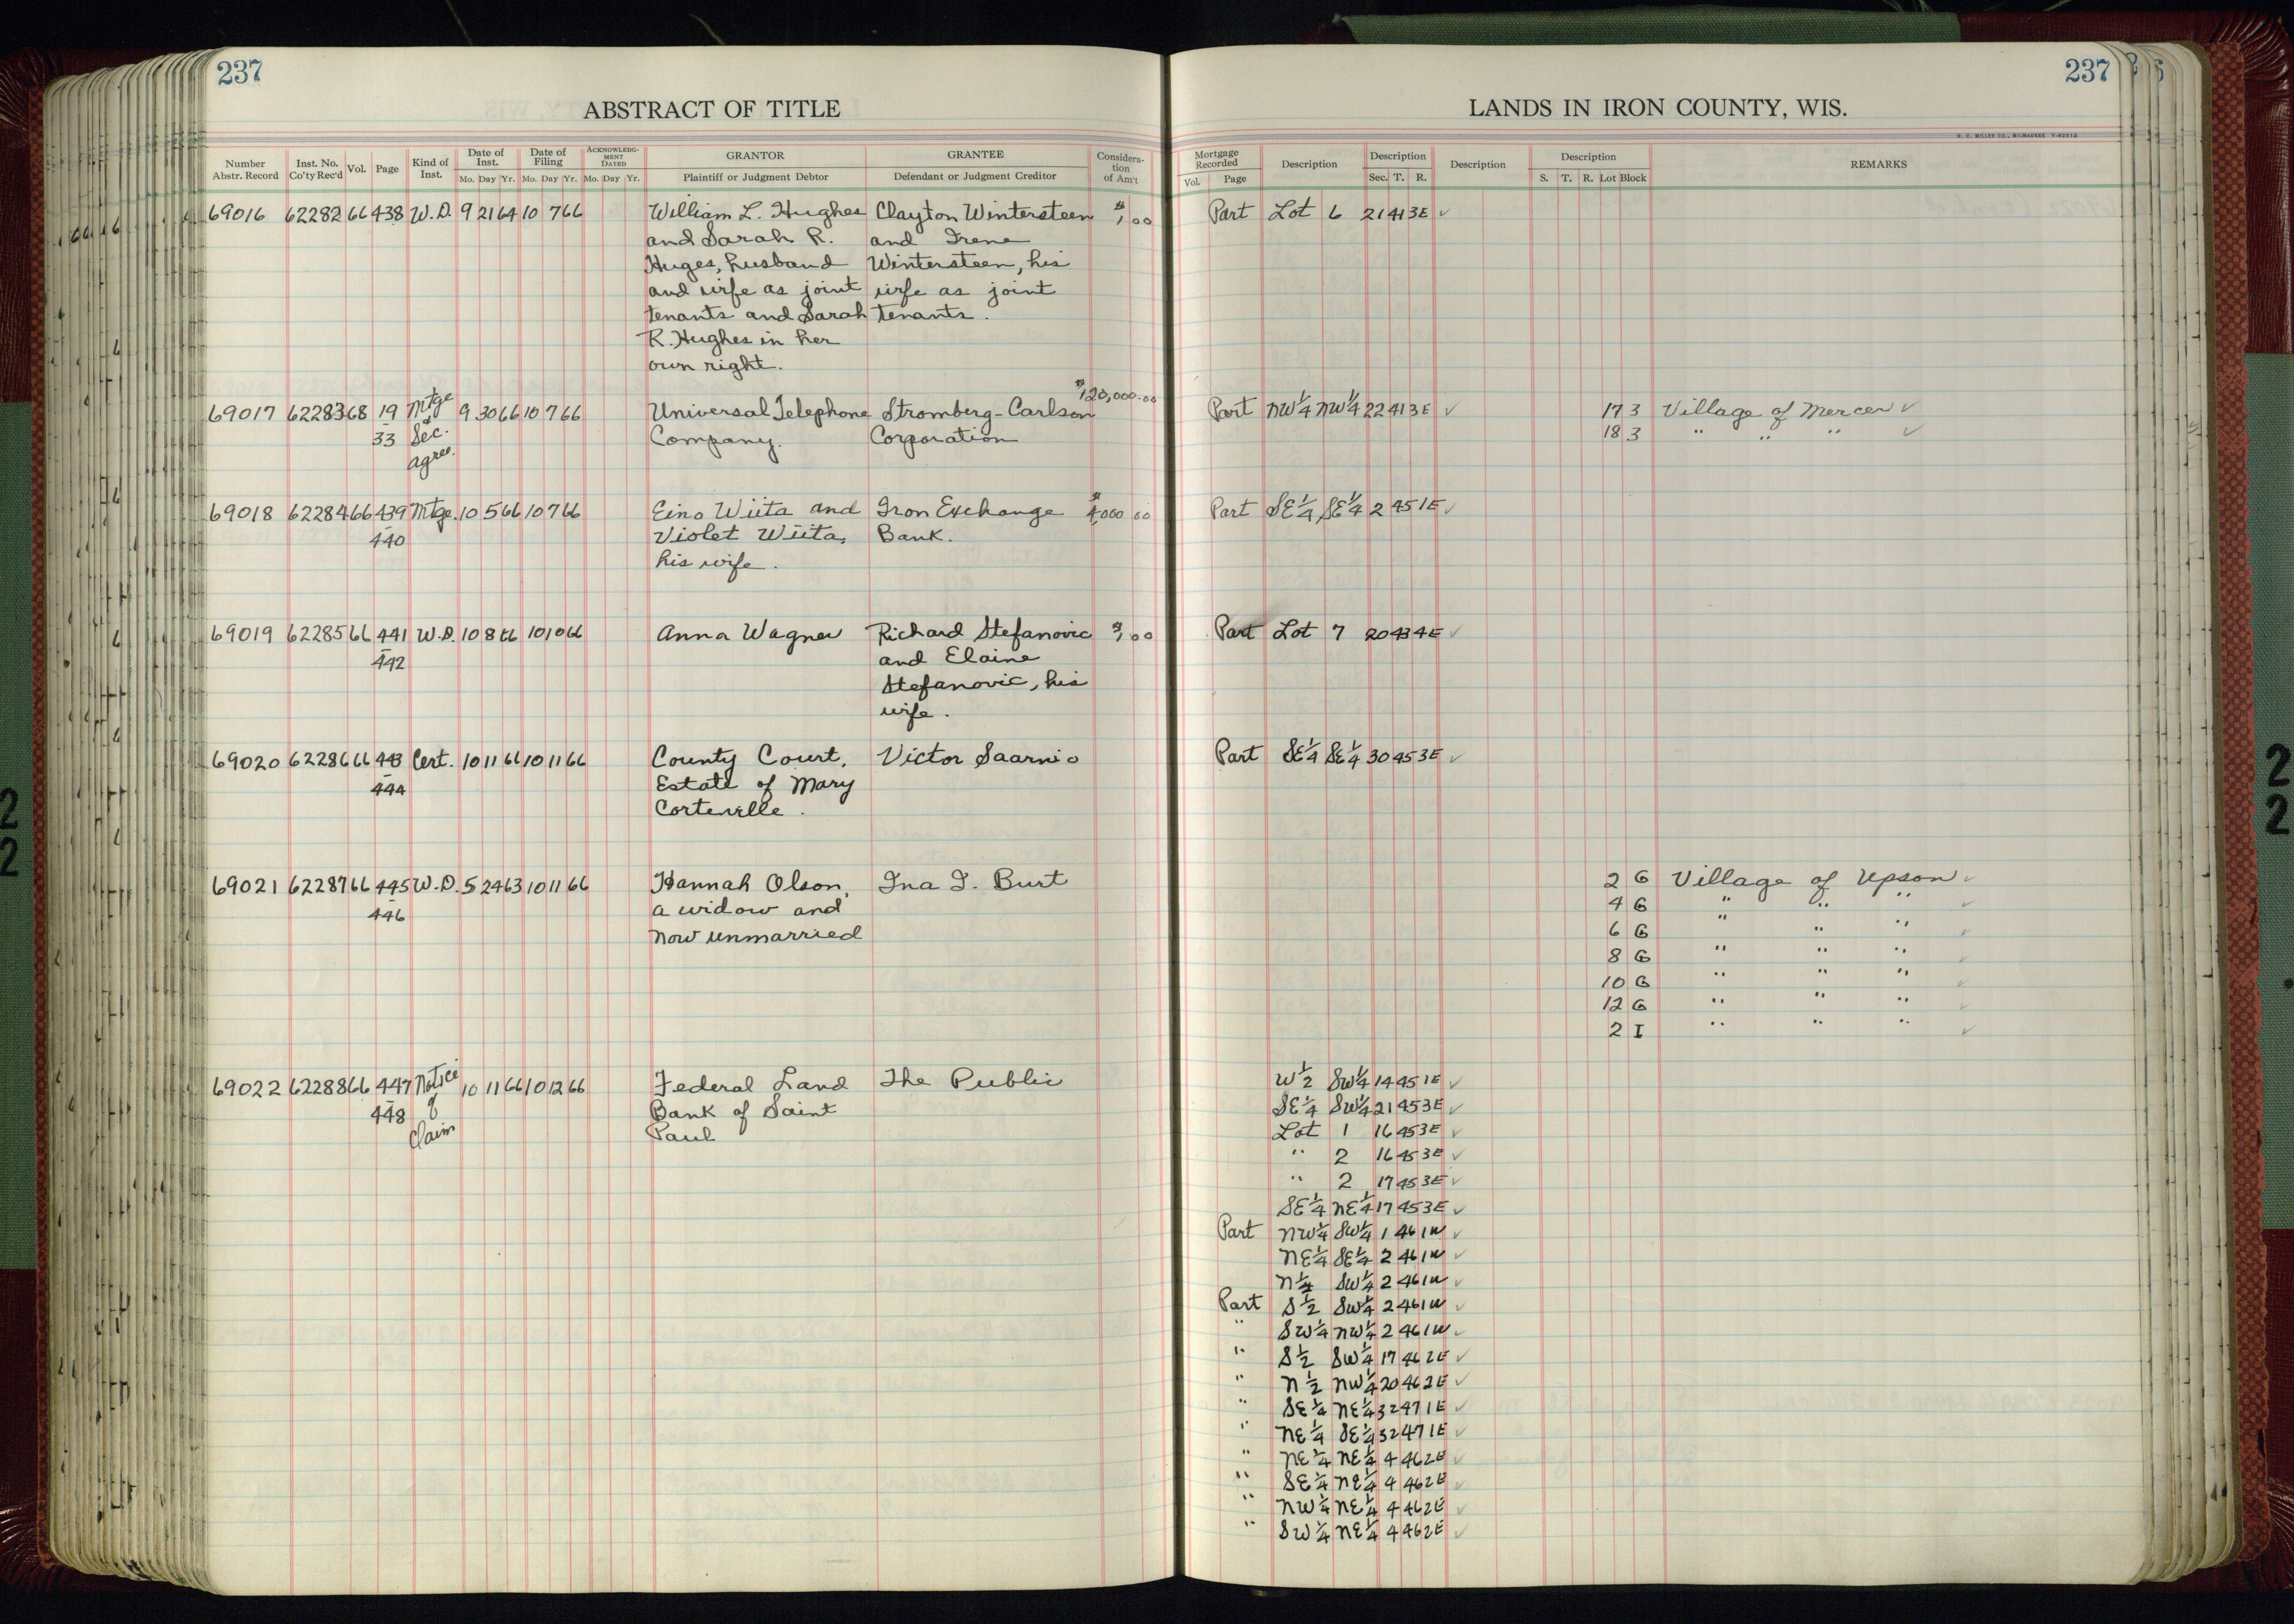 237
ABSTRACT OF TITLE
Number Abstr. Record Inst. No. Co'ty Rec'd Vol. Page Kind of Inst. Date of Inst. Mo. Day Yr. Date of Filing Mo. Day Yr. ACKNOWLEDGMENT DATED Mo. Day Yr. GRANTOR Plaintiff or Judgment Debtor GRANTEE Defendant or Judgment Creditor Consideration of Am't
69016 62282 66 438 W.D. 9 21 64 10 7 66 William L. Hughes Clayton Wintersteen $1 00
and Sarah R. and Irene
Huges, husband Wintersteen, his
and wife as joint wife as joint
tenants and Sarah tenants.
R. Hughes in her
own right.
$120,000.00
69017 62283 68 19 Mtge 9 30 66 10 7 66 Universal Telephone Stromberg-Carlson
- 33 & Sec. Company. Corporation
agree.
69018 62284 66 439 Mtge. 10 5 66 10 7 66 Eino Wiita and Iron Exchange $4,000 00
- 440 Violet Wiita, Bank.
his wife.
69019 62285 66 441 W.D. 10 8 66 10 10 66 Anna Wagner Richard Stefanovic $1 00
- 442 and Elaine
Stefanovic, his
wife.
69020 62286 66 443 Cert. 10 11 66 10 11 66 County Court, Victor Saarnio
- 444 Estate of Mary
Corteville.
69021 62287 66 445 W.D. 5 24 63 10 11 66 Hannah Olson, Ina I. Burt
- 446 a widow and
now unmarried
69022 62288 66 447 Notice 10 11 66 10 12 66 Federal Land The Public
- 448 of Bank of Saint
Claim Paul
237
LANDS IN IRON COUNTY, WIS.
H. C. MILLER CO., MILWAUKEE
Mortgage Recorded Vol. Page Description Description Sec. T. R. Description Description S. T. R. Lot Block REMARKS
Part Lot 6 21 41 3E ✓
Part NW¼ NW¼ 22 41 3E ✓ 17 3 Village of Mercer ✓
18 3 " " " ✓
Part SE¼ SE¼ 2 45 1E ✓
Part Lot 7 20 43 4E ✓
Part SE¼ SE¼ 30 45 3E ✓
2 G Village of Upson ✓
4 G " " " ✓
6 G " " " ✓
8 G " " " ✓
10 G " " " ✓
12 G " " " ✓
2 I " " " ✓
W½ SW¼ 14 45 1E ✓
SE¼ SW¼ 21 45 3E ✓
Lot 1 16 45 3E ✓
" 2 16 45 3E ✓
" 2 17 45 3E ✓
SE¼ NE¼ 17 45 3E ✓
Part NW¼ SW¼ 1 46 1W ✓
NE¼ SE¼ 2 46 1W ✓
N½ SW¼ 2 46 1W ✓
Part S½ SW¼ 2 46 1W ✓
" SW¼ NW¼ 2 46 1W ✓
" S½ SW¼ 17 46 2E ✓
" N½ NW¼ 20 46 2E ✓
" SE¼ NE¼ 32 47 1E ✓
" NE¼ SE¼ 32 47 1E ✓
" NE¼ NE¼ 4 46 2E ✓
" SE¼ NE¼ 4 46 2E ✓
" NW¼ NE¼ 4 46 2E ✓
" SW¼ NE¼ 4 46 2E ✓
22
22